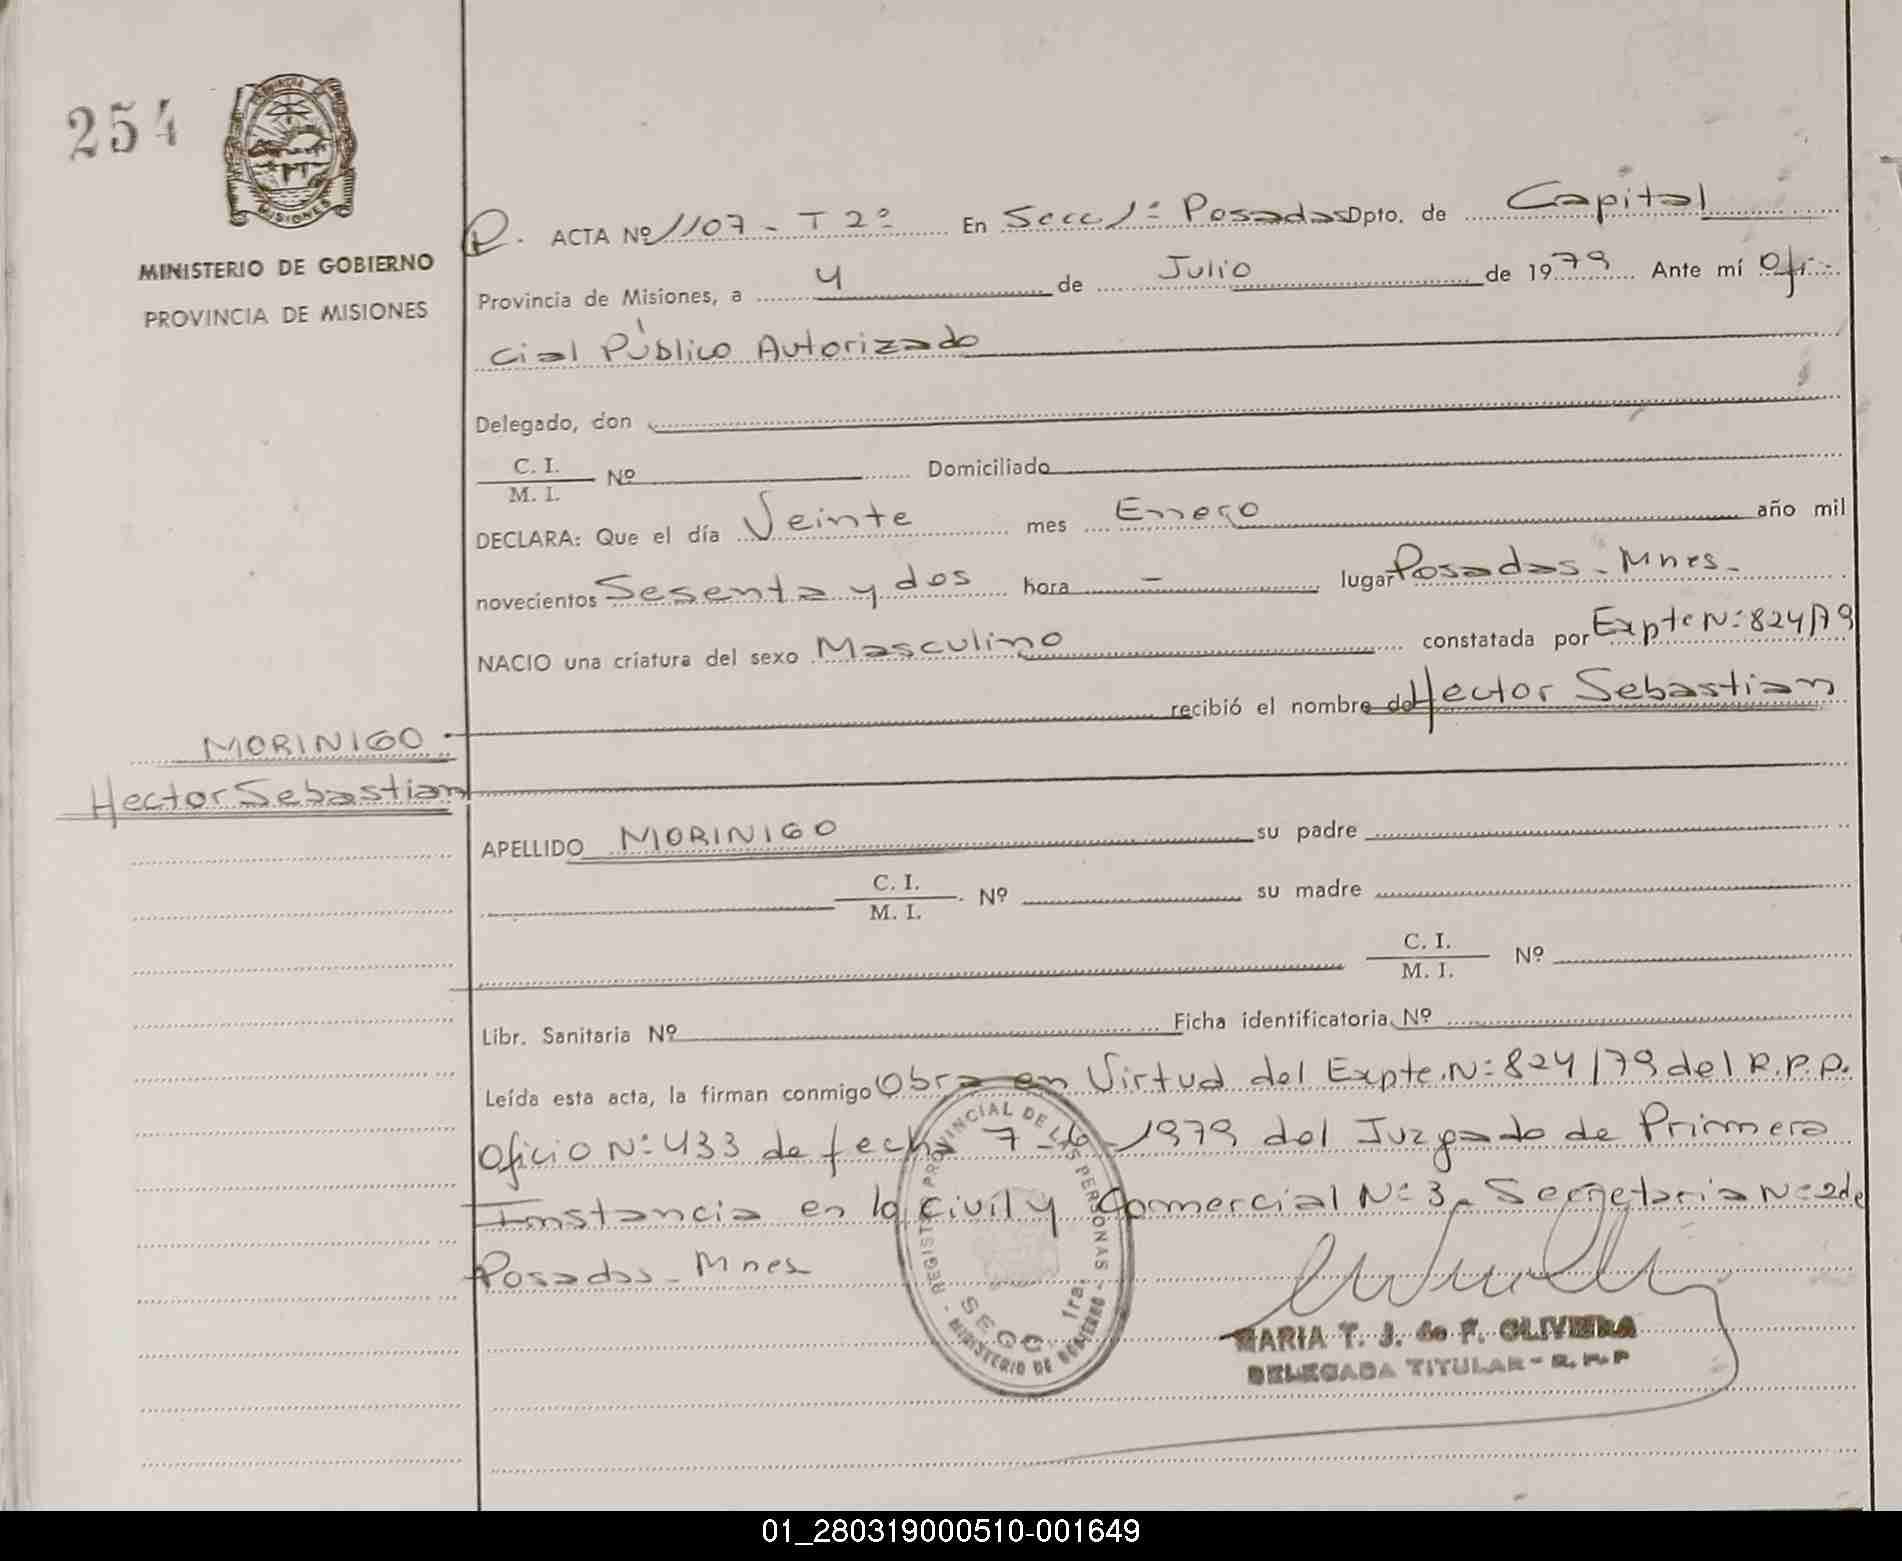 254
PROVINCIA DE
MISIONES
MINISTERIO DE GOBIERNO
PROVINCIA DE MISIONES
P. ACTA Nº 1107 - T 2º En Secc 1ª Posadas Dpto. de Capital
Provincia de Misiones, a 4 de Julio de 1979 Ante mí Ofi-
cial Público Autorizado
Delegado, don
C. I.
M. I. Nº Domiciliado
DECLARA: Que el día Veinte mes Enero año mil
novecientos Sesenta y dos hora - lugar Posadas - Mnes -
NACIO una criatura del sexo Masculino constatada por Expte Nº 824/79
recibió el nombre de Hector Sebastian
MORINIGO
Hector Sebastian
APELLIDO MORINIGO su padre
C. I.
M. I. Nº su madre
C. I.
M. I. Nº
Libr. Sanitaria Nº Ficha identificatoria Nº
Leída esta acta, la firman conmigo Obra en Virtud del Expte. Nº 824/79 del R.P.P.
Oficio Nº 433 de fecha 7-6-1979 del Juzgado de Primera
Instancia en lo Civil y Comercial Nº 3 - Secretaria Nº 2 de
Posadas - Mnes
REGISTRO PROVINCIAL DE LAS PERSONAS - MINISTERIO DE GOBIERNO -
SECC. 1ra.
MARIA T. J. de F. OLIVEIRA
DELEGADA TITULAR - R. P. P
01_280319000510-001649